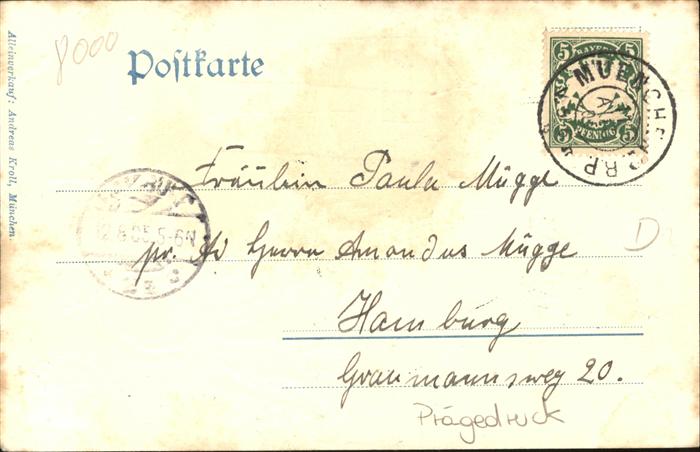 Alleinverkauf: Andreas Kroll, München.
8000
Postkarte
5 BAYERN 5
5 PFENNIG 5
MUENCHEN
B.P.
Fräulein Paula Mügge
pr. Ad. Herrn Amandus Mügge
Hamburg
Graumannsweg 20.
5-6N
D
Prägedruck